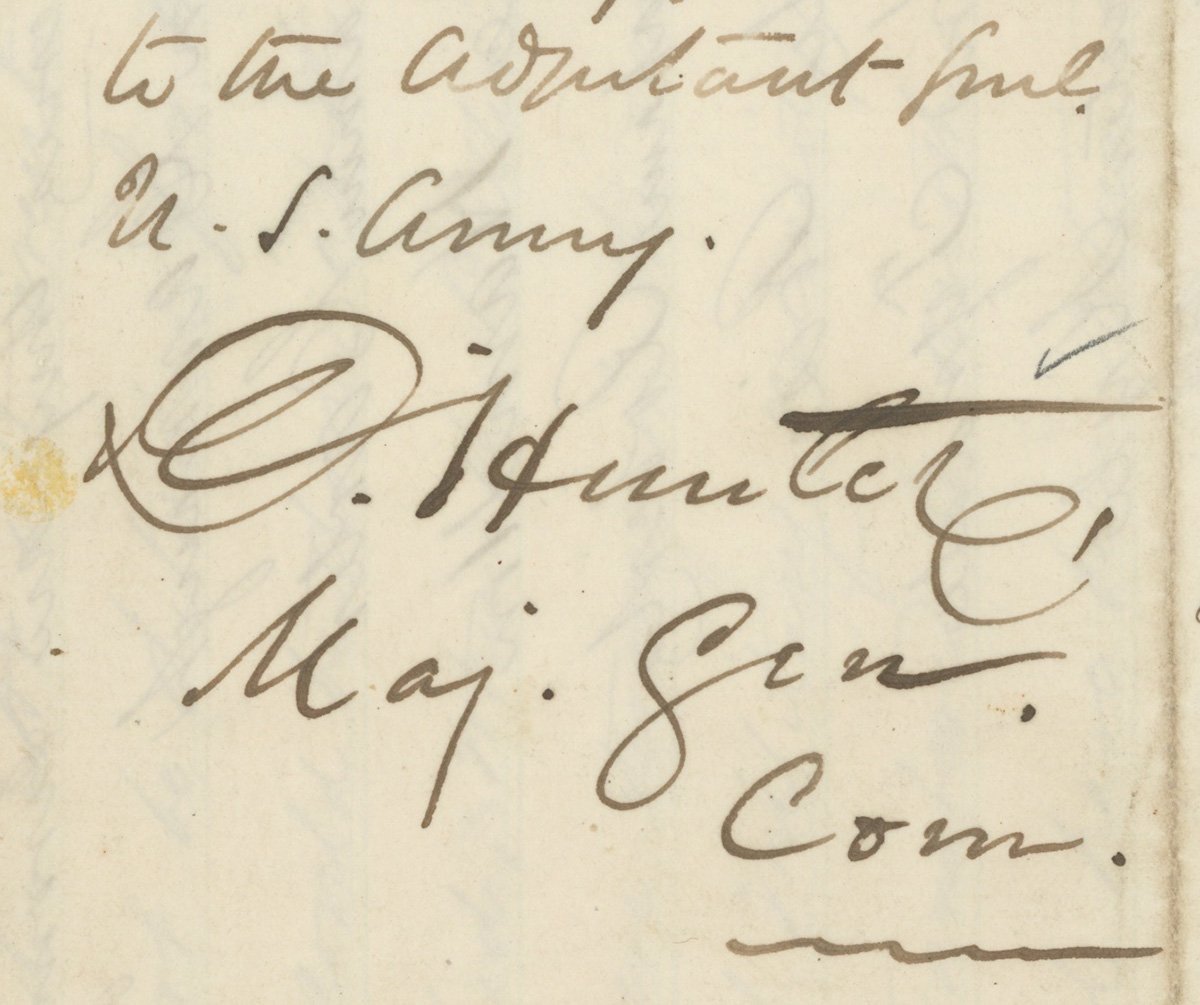 to the Adjutant Genl.
U. S. Army.
D. Hunter,
Maj. Gen.
Com.